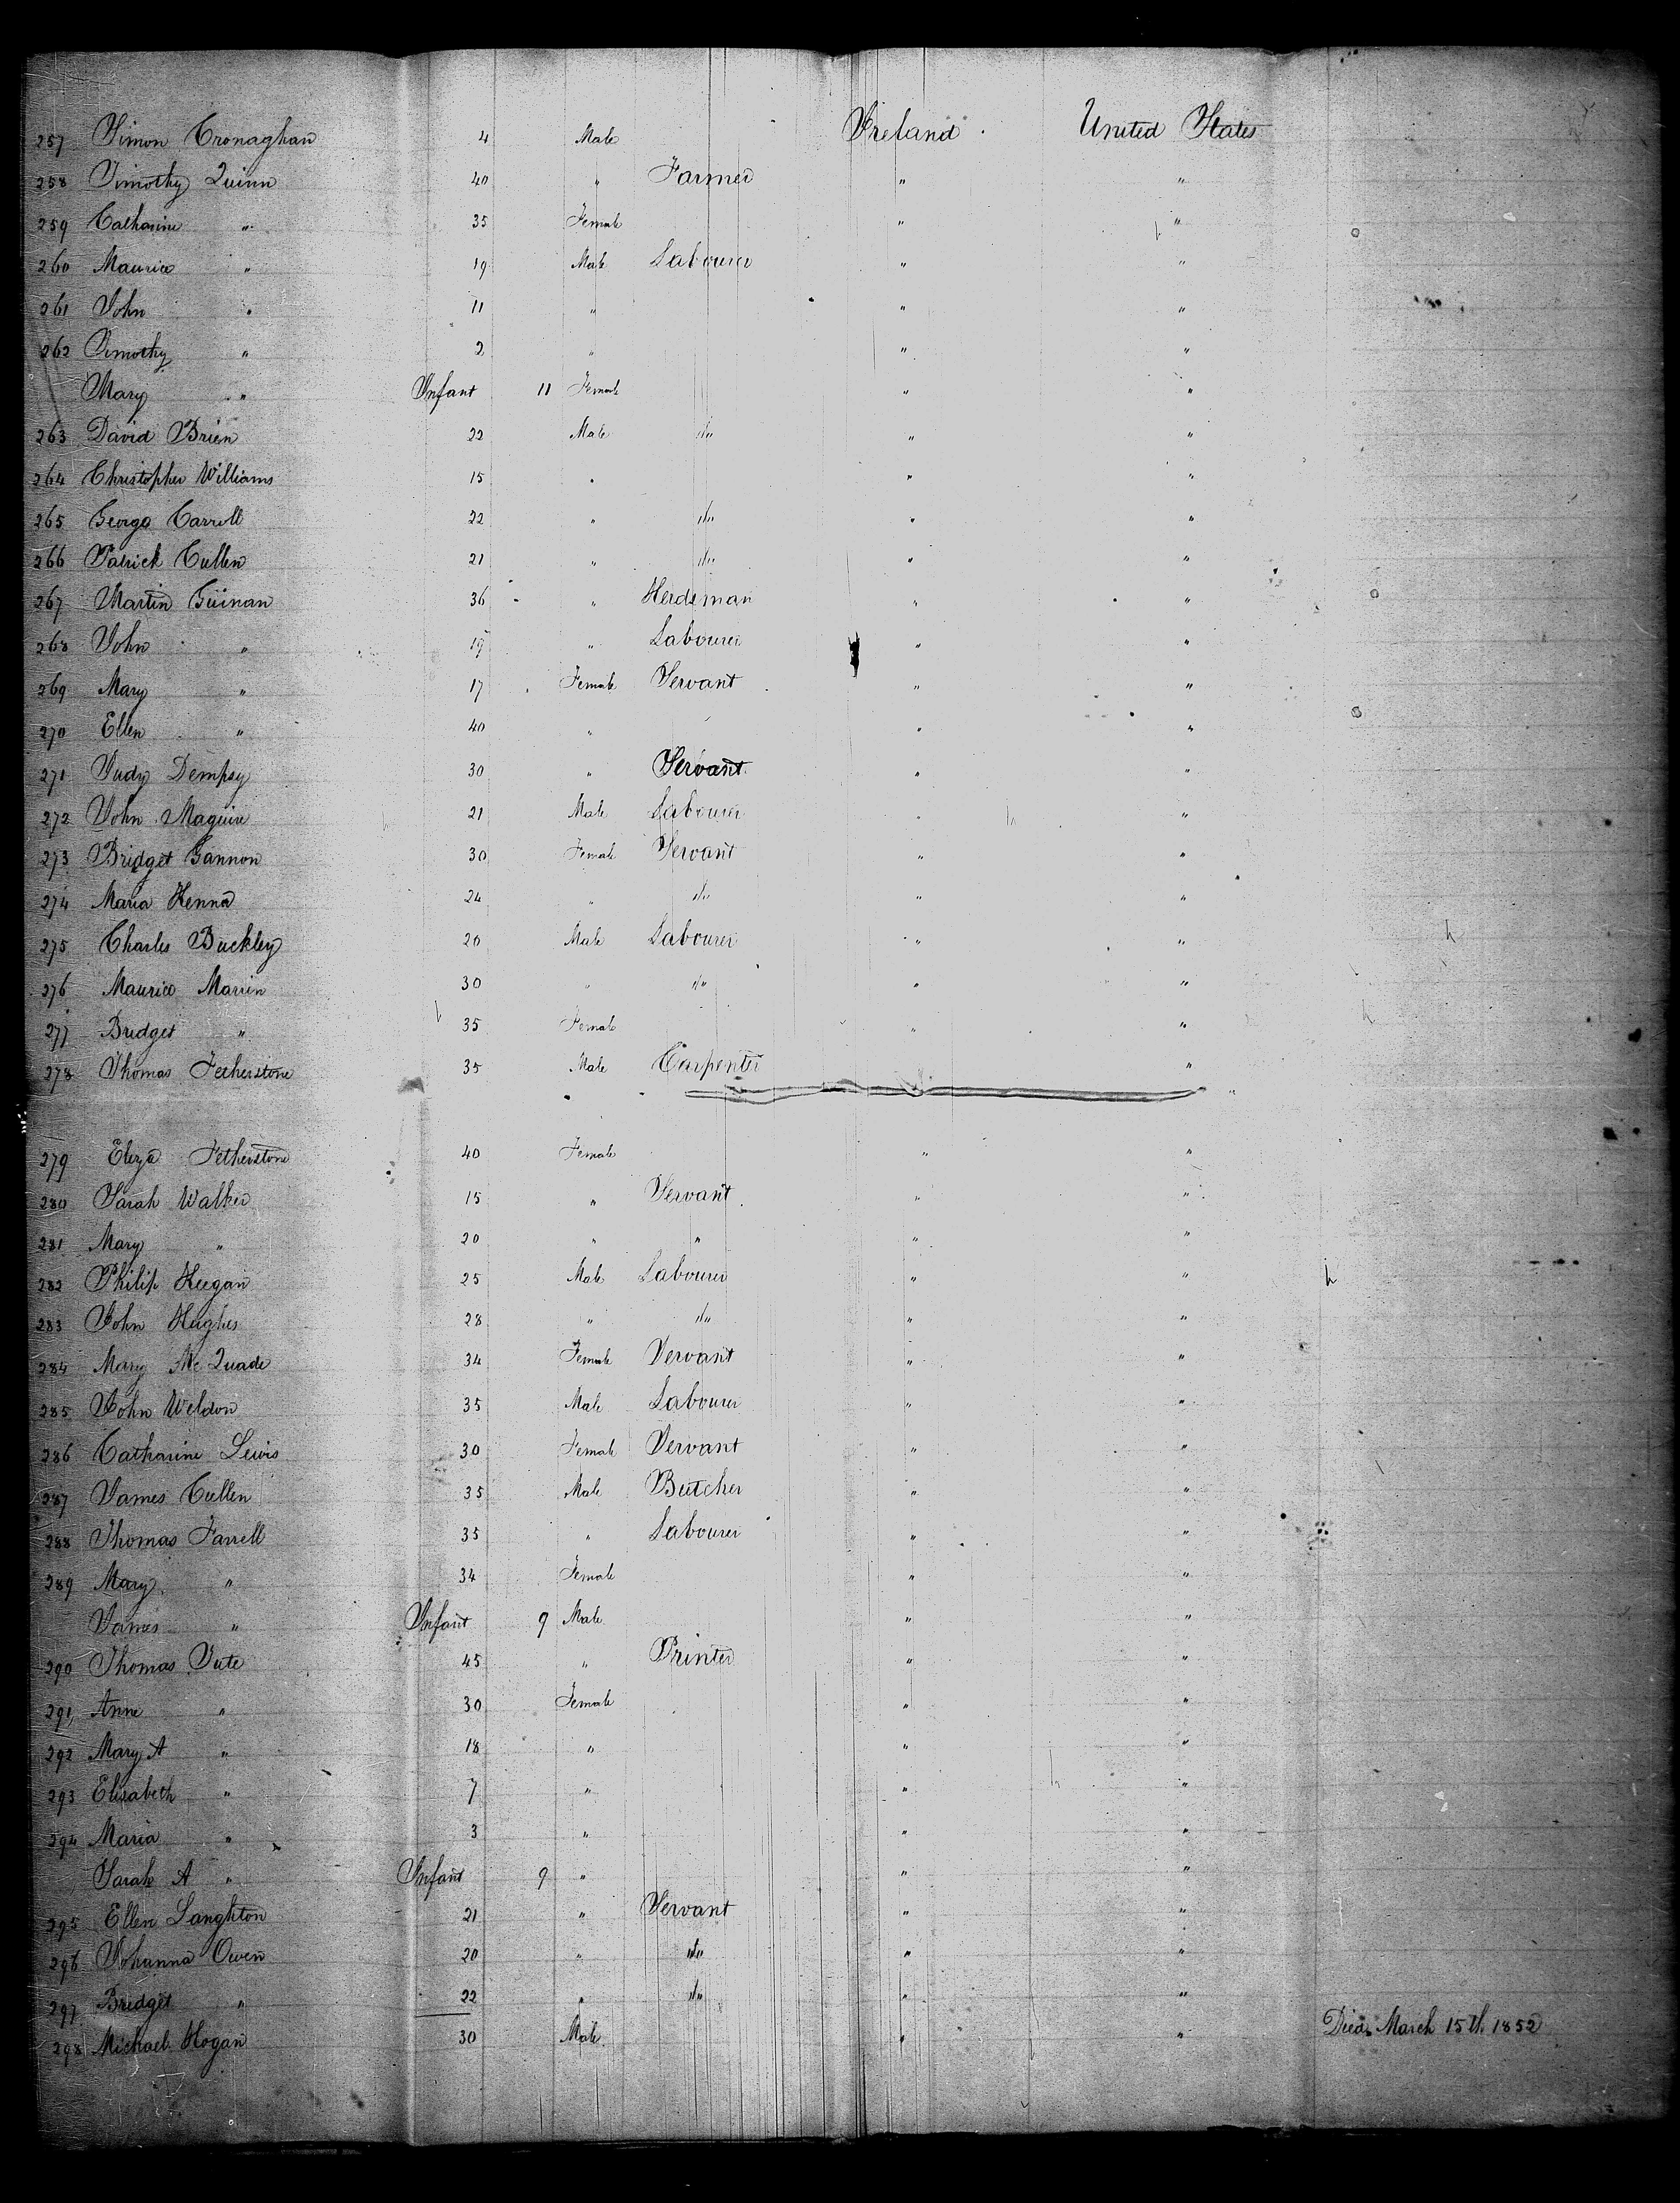 257 Simon Cronaghan 4 Male Ireland United States
258 Timothy Quinn 40 " Farmer " "
259 Catharine " 35 Female " "
260 Maurice " 19 Male Labourer " "
261 John " 11 " " "
262 Timothy " 2 " " "
Mary " Infant 11 Female " "
263 David Brien 22 Male do " "
264 Christopher Williams 15 " " "
265 George Carroll 22 " do " "
266 Patrick Cullen 21 " do " "
267 Martin Guinan 36 " Herdsman " "
268 John " 19 " Labourer " "
269 Mary " 17 Female Servant " "
270 Ellen " 40 " " "
271 Judy Dempsy 30 " Servant " "
272 John Maguire 21 Male Labourer " "
273 Bridget Gannon 30 Female Servant " "
274 Maria Kenna 24 " do " "
275 Charles Buckley 20 Male Labourer " "
276 Maurice Marrin 30 " do " "
277 Bridget " 35 Female " "
278 Thomas Fetherstone 35 Male Carpenter "
279 Eliza Fetherstone 40 Female " "
280 Sarah Walker 15 " Servant " "
281 Mary " 20 " " " "
282 Philip Keegan 25 Male Labourer " "
283 John Hughes 28 " do " "
284 Mary McQuade 34 Female Servant " "
285 John Weldon 35 Male Labourer " "
286 Catharine Lewis 30 Female Servant " "
287 James Cullen 35 Male Butcher " "
288 Thomas Farrell 35 " Labourer " "
289 Mary " 34 Female " "
James " Infant 9 Male " "
290 Thomas Tute 45 " Printer " "
291 Anne " 30 Female " "
292 Mary A " 18 " " "
293 Elisabeth " 7 " " "
294 Maria " 3 " " "
Sarah A " Infant 9 " " "
295 Ellen Langhton 21 " Servant " "
296 Johanna Owen 20 " do " "
297 Bridget " 22 " do " "
298 Michael Hogan 30 Male " " Died March 15th 1852